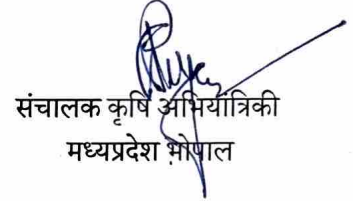 संचालक कृषि अभियांत्रिकी
मध्यप्रदेश भोपाल